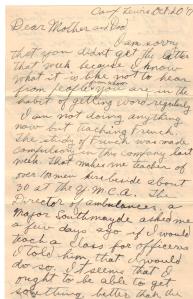 Camp Lewis Oct 20 '17
Dear Mother and Dad
I am sorry
that you didn't get the letter
that week because I know
what it is like not to hear
from people you are in the
habit of getting word regularly
I am not doing anything
now but teaching French.
The study of French was made
compulsory in this company last
week. That makes me teacher of
over men here beside about
30 at the Y.M.C.A. The
Director of ambulances, a
Major Southmayde asked me
a few days ago if I would
teach a class for officers
I told him that I would
do so. It seems that I
ought to be able to get
something better than